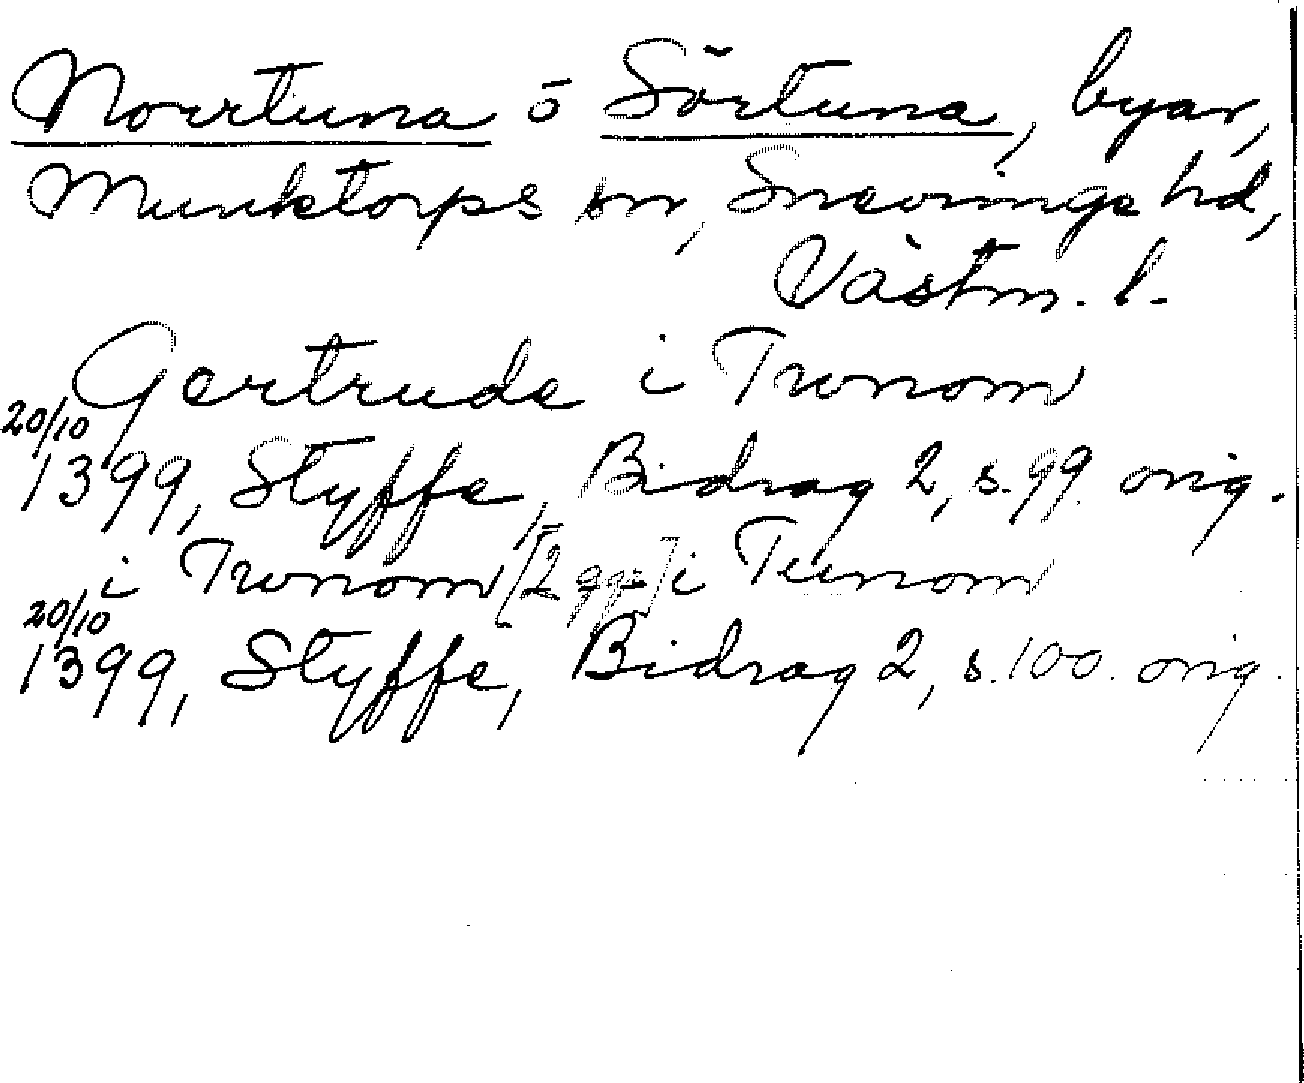 Norrtuna o Sörtuna, byar,
Munktorps sn, Snevringe hd,
Västm. l.
Gertrude i Twnom
20/10
1399, Styffe, Bidrag 2, s. 99. orig.
i Twnom [2 ggr] i Tunom
20/10
1399, Styffe, Bidrag 2, s. 100. orig.